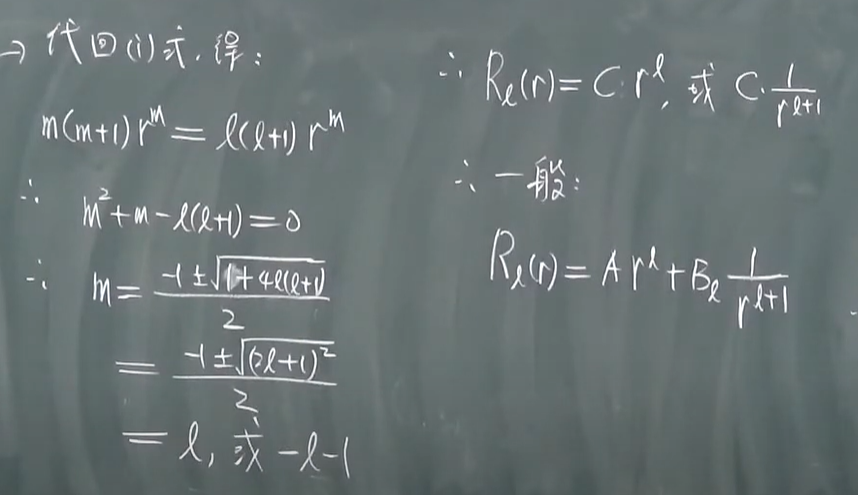 → 代回(i)式,得:
m(m+1)r^m = l(l+1)r^m
∴ m²+m-l(l+1)=0
∴ m = (-1±√(1+4l(l+1)))/2
= (-1±√((2l+1)²))/2
= l, 或 -l-1
∴ R_l(r) = C r^l, 或 C·1/r^(l+1)
∴ 一般:
R_l(r) = A r^l + B_l 1/r^(l+1)